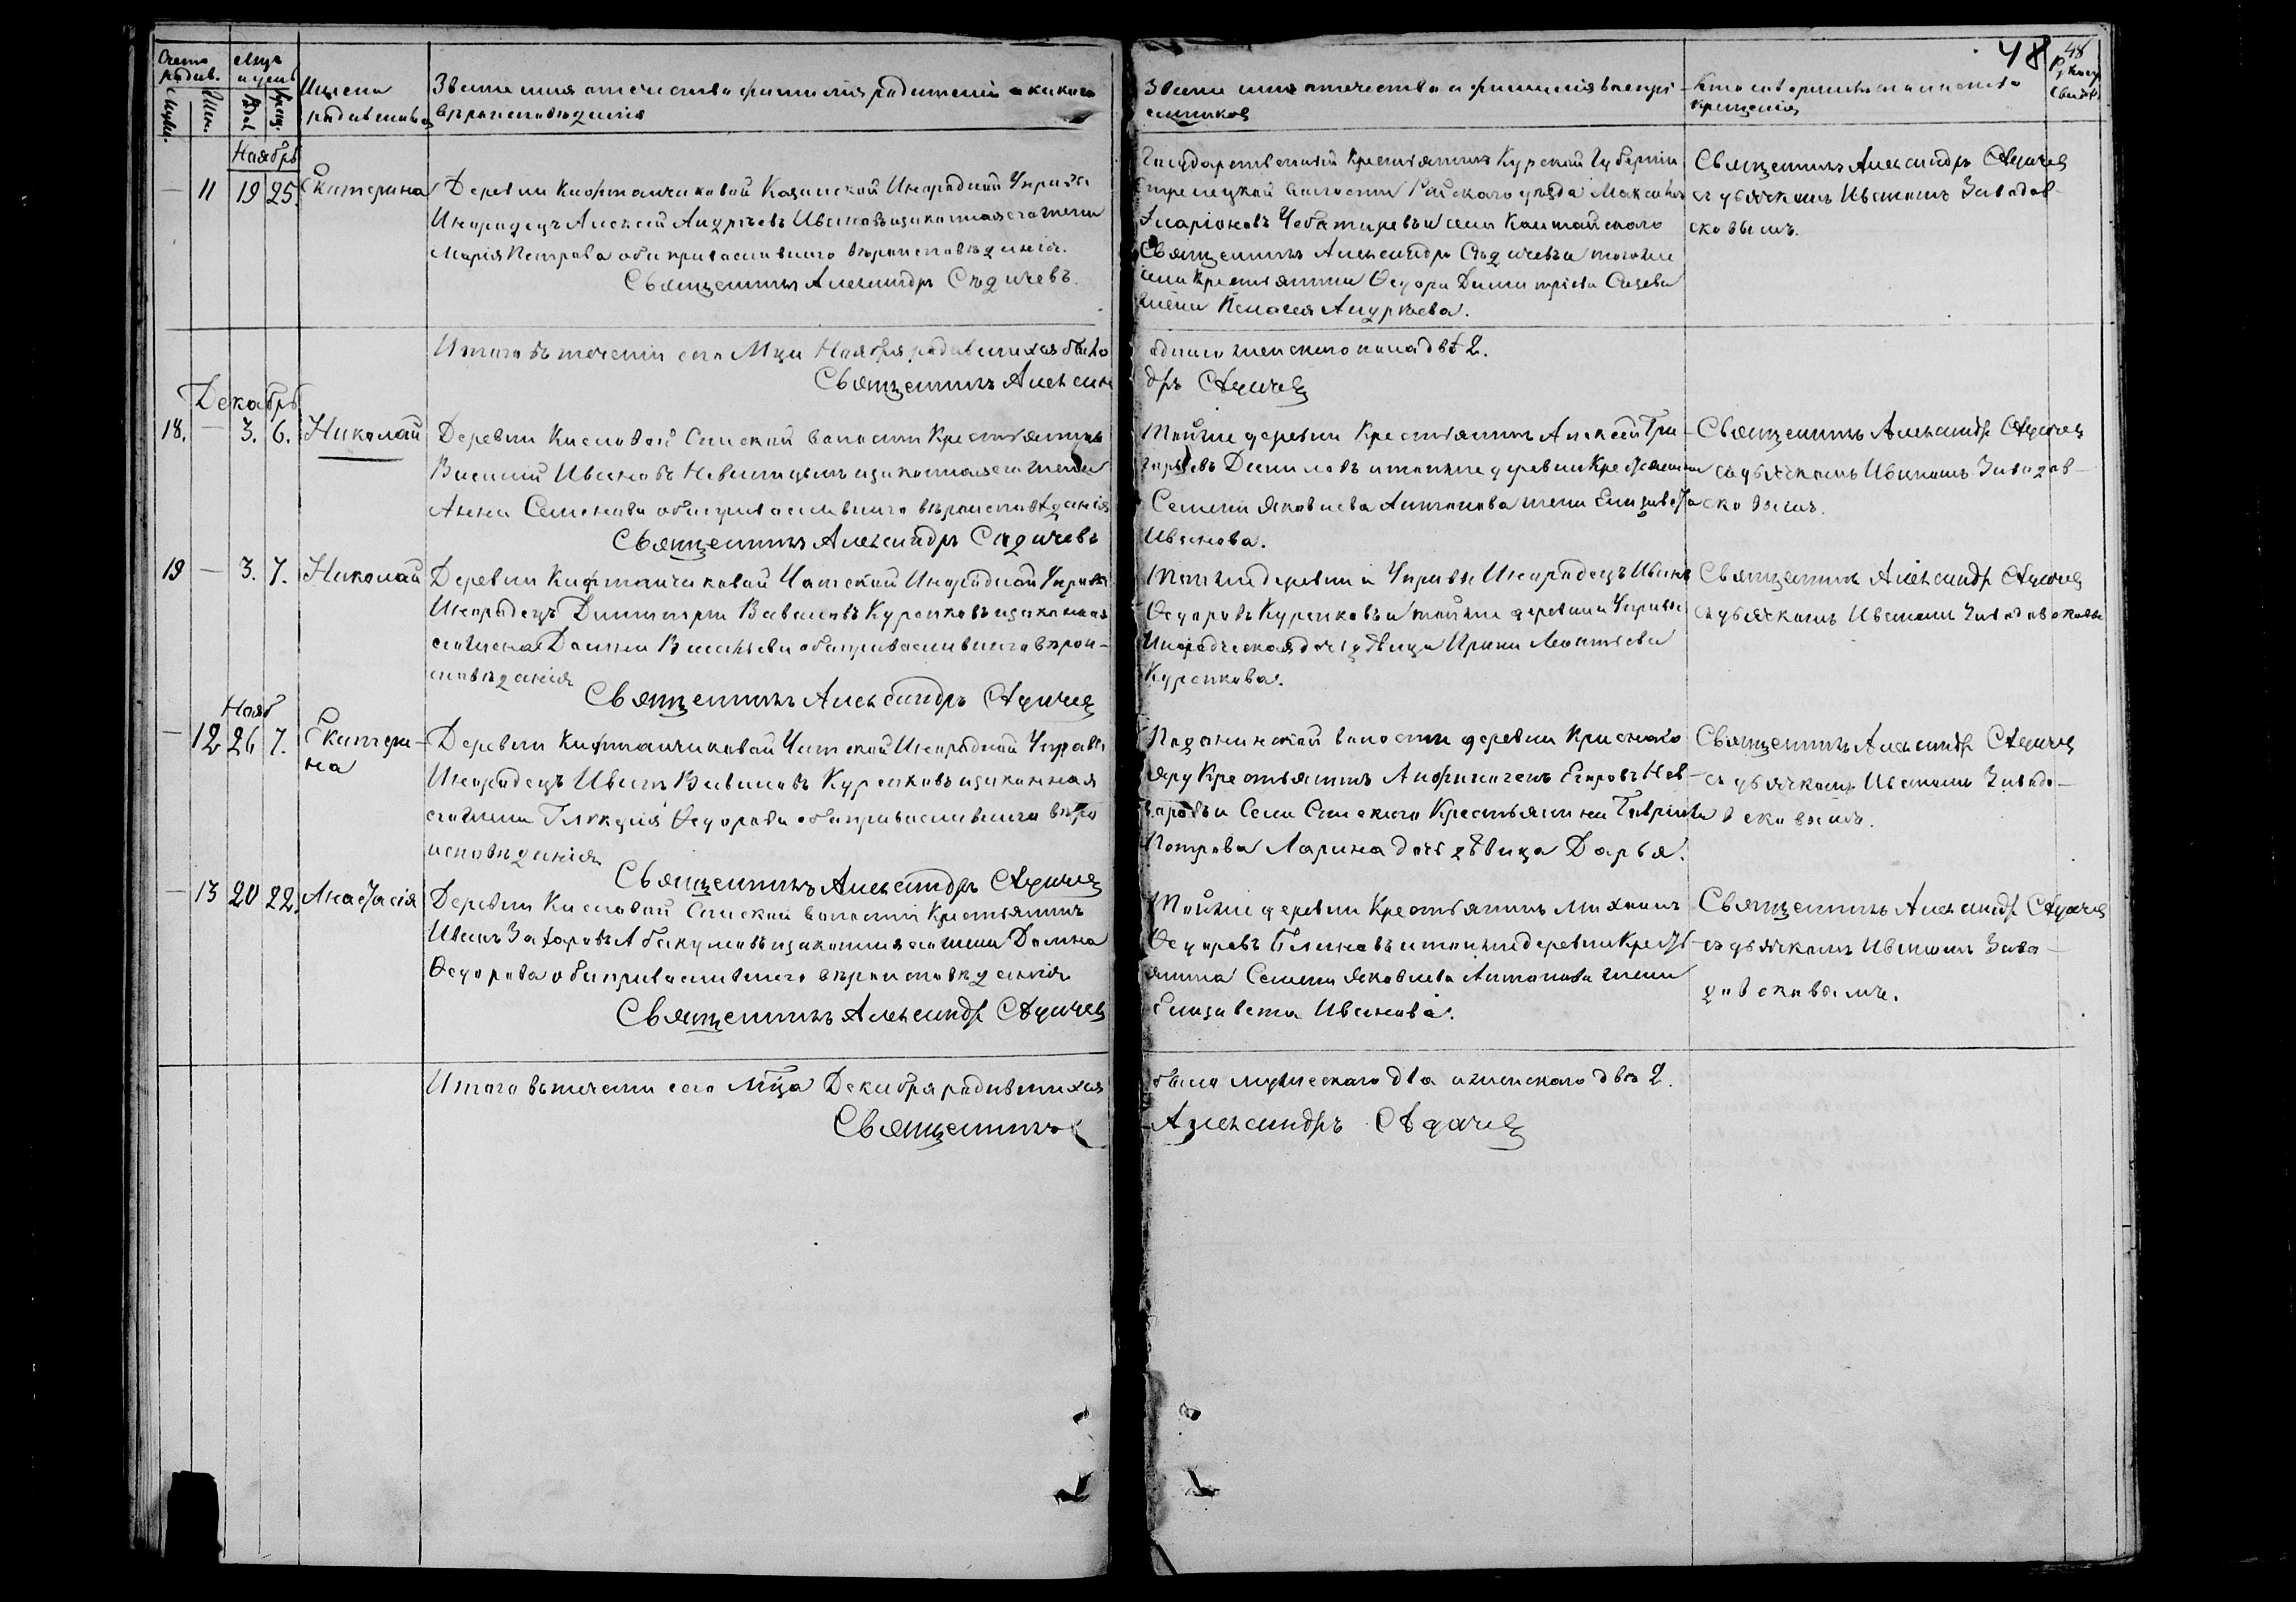 48
48
Счетъ родив.
Мужс.
Жен.
Мцъ и день
Рожд
Крещ.
Имена
родившихся
Званіе имя отечество фамилія родителей и какого
вѣроисповѣданія
Званіе имя отечество и фамилія воспрі-
емниковъ
Кто совершалъ таинство
крещенія
Ноябрь
— 11 19 25. Екатерина
Деревни Кафтанчиковой Казанской Инородной Управы
Инородецъ Алексѣй Андрѣевъ Ивановъ и законная его жена
Марія Петрова оба православнаго вѣроисповѣданія.
Священникъ Александръ Сѣдачевъ.
Государственный Крестьянинъ Курской Губерніи
Стрелецкой волости уѣзда
Иларіоновъ Чеботаревъ и села Калтайскаго
Священникъ Александръ Сѣдачевъ и того же
села Крестьянина Ѳедора Димитріева
жена Пелагея Андреева.
Священникъ Александръ Сѣдачев
съ дьячкомъ Иваномъ Завадов-
сковымъ.
Итого въ теченіи сего Мца Ноября родившихся было
Священникъ Алексан
одного женскаго пола двѣ 2.
дръ Сѣдачев
Декабрь
18. — 3. 6. Николай
Деревни Кисловой Спаской волости Крестьянинъ
Василій Ивановъ Невлицынъ и законная его жена
Анна Семенова оба православнаго вѣроисповѣданія
Священникъ Александръ Сѣдачевъ
Той же деревни Крестьянинъ Алексѣй Гри-
горьевъ Даниловъ и той же деревни Крестьянина
Семена Яковлева Антонова жена Елизавета
Иванова.
Священникъ Александръ Сѣдачев
съ дьячкомъ Иваномъ Завадов-
сковымъ.
19 — 3. 7. Николай
Деревни Кафтанчиковой Чатской Инородной Управы
Инородецъ Димитрій Вавиловъ Курсковъ и законная
его жена Домна Васильева оба православнаго вѣрои-
сповѣданія
Священникъ Александръ Сѣдачев
Той же деревни и Управы Инородецъ Иванъ
Ѳедоровъ Курсковъ и той же деревни и Управы
Инородческая дочь дѣвица Ирина Леонтьева
Курскова.
Священникъ Александръ Сѣдачев
съ дьячкомъ Иваномъ Завадовсковы
Нояб
— 12 26 7. Екатери-
на
Деревни Кафтанчиковой Чатской Инородной Управы
Инородецъ Иванъ Вавиловъ Курсковъ и законная
его жена Гликерія Ѳедорова оба православнаго вѣро
исповѣданія
Священникъ Александръ Сѣдачев
волости деревни Краснаго
яру Крестьянинъ Егоровъ Нев-
заровъ и Села Спаскаго Крестьянина Гаврила
Петрова Ларина дочь дѣвица Дарья.
Священникъ Александръ Сѣдачев
съ дьячкомъ Иваномъ Завадо-
всковымъ.
— 13 20 22. Анастасія
Деревни Кисловой Спаской волости Крестьянинъ
Иванъ Захаровъ Абакумовъ и законная его жена Домна
Ѳедорова оба православнаго вѣроисповѣданія
Священникъ Александръ Сѣдачев
Той же деревни Крестьянинъ Михаилъ
Ѳедоровъ Блиновъ и той же деревни Кресть-
янина Семена Яковлева Антонова жена
Елизавета Иванова.
Священникъ Александръ Сѣдачев
съ дьячкомъ Иваномъ Зава-
довсковымъ.
Итого въ теченіи сего Мца Декабря родившихся
Священникъ
было мужескаго два и женскаго двѣ 2.
Александръ Сѣдачев